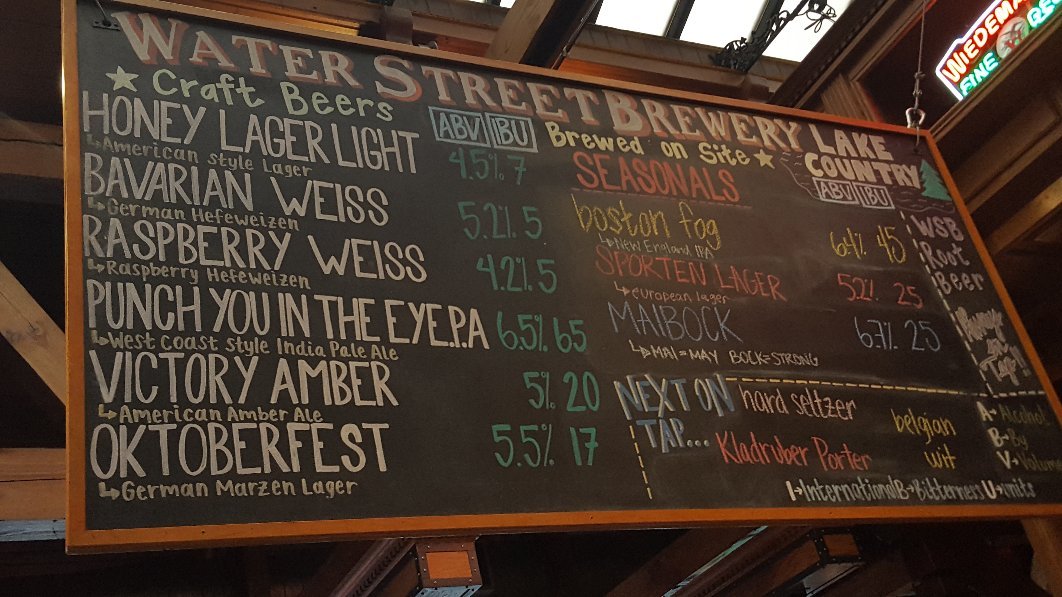 WATER STREET BREWERY LAKE COUNTRY
Craft Beers
ABV IBU
Brewed on Site
HONEY LAGER LIGHT 4.5% 7
American Style Lager
BAVARIAN WEISS 5.2% 5
German Hefeweizen
RASPBERRY WEISS 4.2% 5
Raspberry Hefeweizen
PUNCH YOU IN THE EYE.P.A 6.5% 65
West Coast Style India Pale Ale
VICTORY AMBER 5% 20
American Amber Ale
OKTOBERFEST 5.5% 17
German Marzen Lager
SEASONALS
ABV IBU
boston fog 6.4% 45
New England IPA
SPORTEN LAGER 5.2% 25
european lager
MAIBOCK 6.7% 25
MAI=MAY BOCK=STRONG
WSB
Root
Beer
Always
on
Tap!!
NEXT ON
TAP...
hard seltzer
Kladruber Porter
belgian
wit
A-Alcohol
B-By
V-Volume
I→International B→Bitterness U→nits
WIEDEMA
FINE